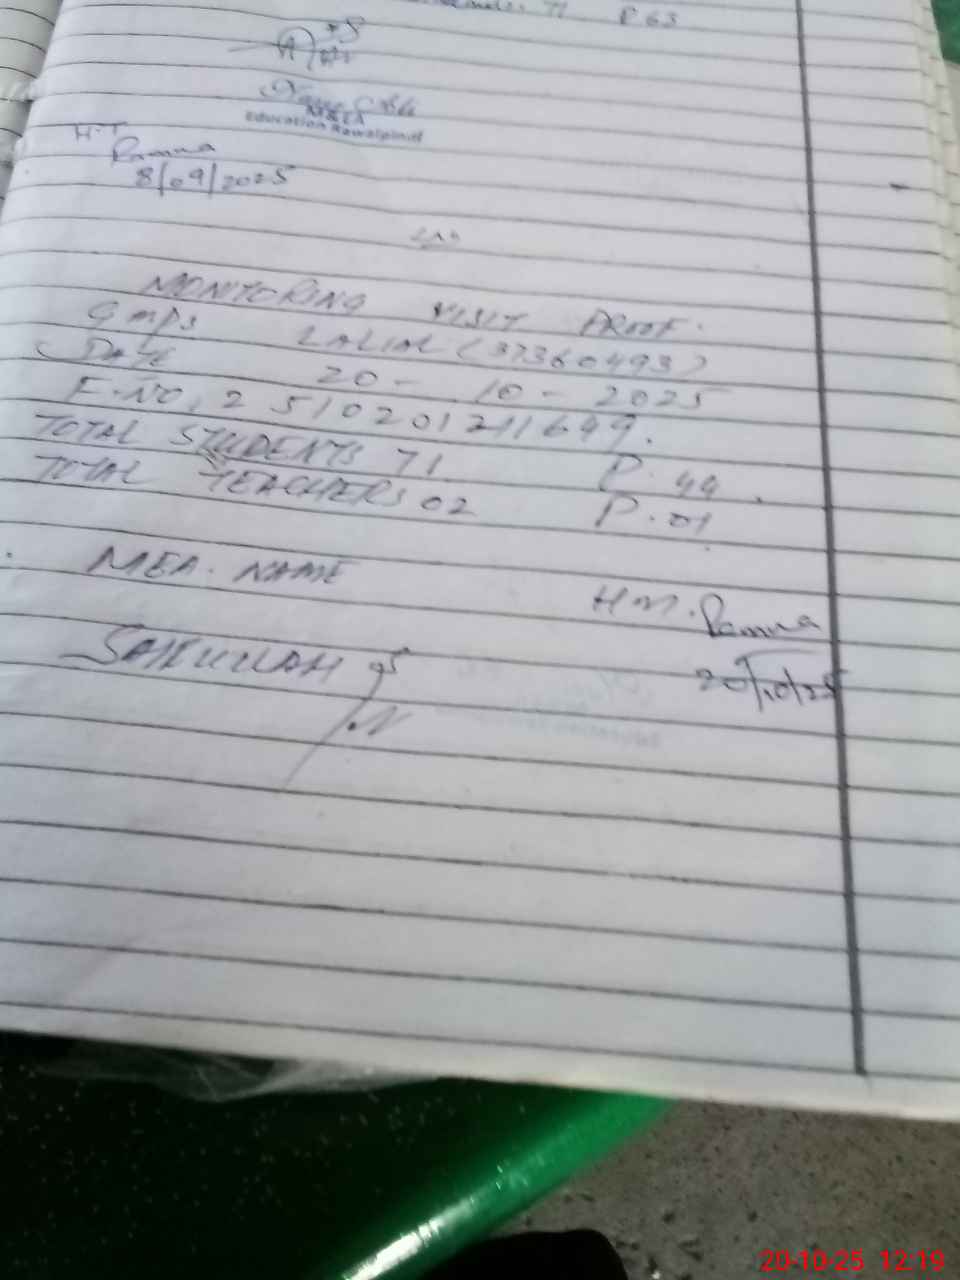 71 P 63
M&EA
Education Rawalpindi
H.T
Ramna
8/09/2025
MONITORING VISIT PROOF.
Gmps LALIAL (37360493)
DATE 20-10-2025
F-NO, 2510201211649.
TOTAL STUDENTS 71 P. 44.
TOTAL TEACHERS 02 P. 01
MEA. NAME
HM. Ramna
20/10/25
20-10-25 12:19